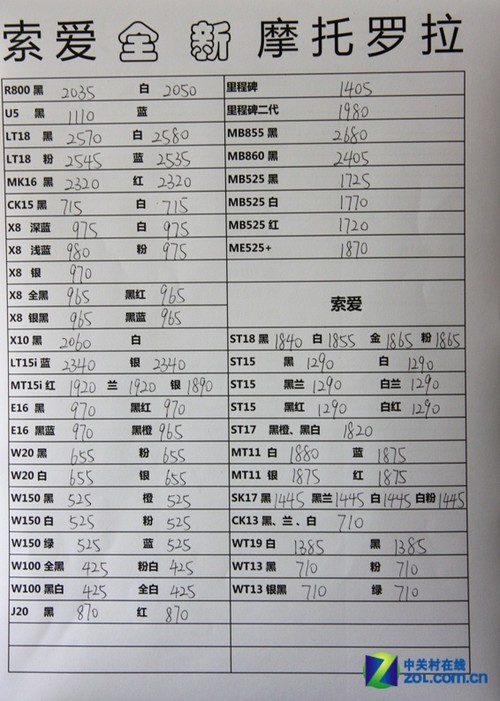 索爱 全新 摩托罗拉
R800 黑 2035 白 2050
U5 黑 1110 蓝
LT18 黑 2570 白 2580
LT18 粉 2545 蓝 2535
MK16 黑 2320 红 2320
CK15 黑 715 白 715
X8 深蓝 975 白 975
X8 浅蓝 980 粉 975
X8 银 970
X8 全黑 965 黑红 965
X8 银黑 965 黑蓝 965
X10 黑 2060 白
LT15i 蓝 2340 银 2340
MT15i 红 1920 兰 1920 银 1890
E16 黑 970 黑红 970
E16 黑蓝 970 黑橙 965
W20 黑 655 粉 655
W20 白 655 银 655
W150 黑 525 橙 525
W150 白 525 粉 525
W150 绿 525 蓝 525
W100 全黑 425 粉白 425
W100 黑白 425 全白 425
J20 黑 870 红 870
里程碑 1405
里程碑二代 1980
MB855 黑 2680
MB860 黑 2405
MB525 黑 1725
MB525 白 1770
MB525 红 1720
ME525+ 1870
索爱
ST18 黑 1840 白 1855 金 1865 粉 1865
ST15 黑 1290 白 1290
ST15 黑兰 1290 白兰 1290
ST15 黑红 1290 白红 1290
ST17 黑橙、黑白 1820
MT11 白 1880 蓝 1875
MT11 银 1875 红 1875
SK17 黑 1445 黑兰 1445 白 1445 白粉 1445
CK13 黑、兰、白 710
WT19 白 1385 黑 1385
WT13 黑 710 粉 710
WT13 银黑 710 绿 710
中关村在线
ZOL.COM.CN